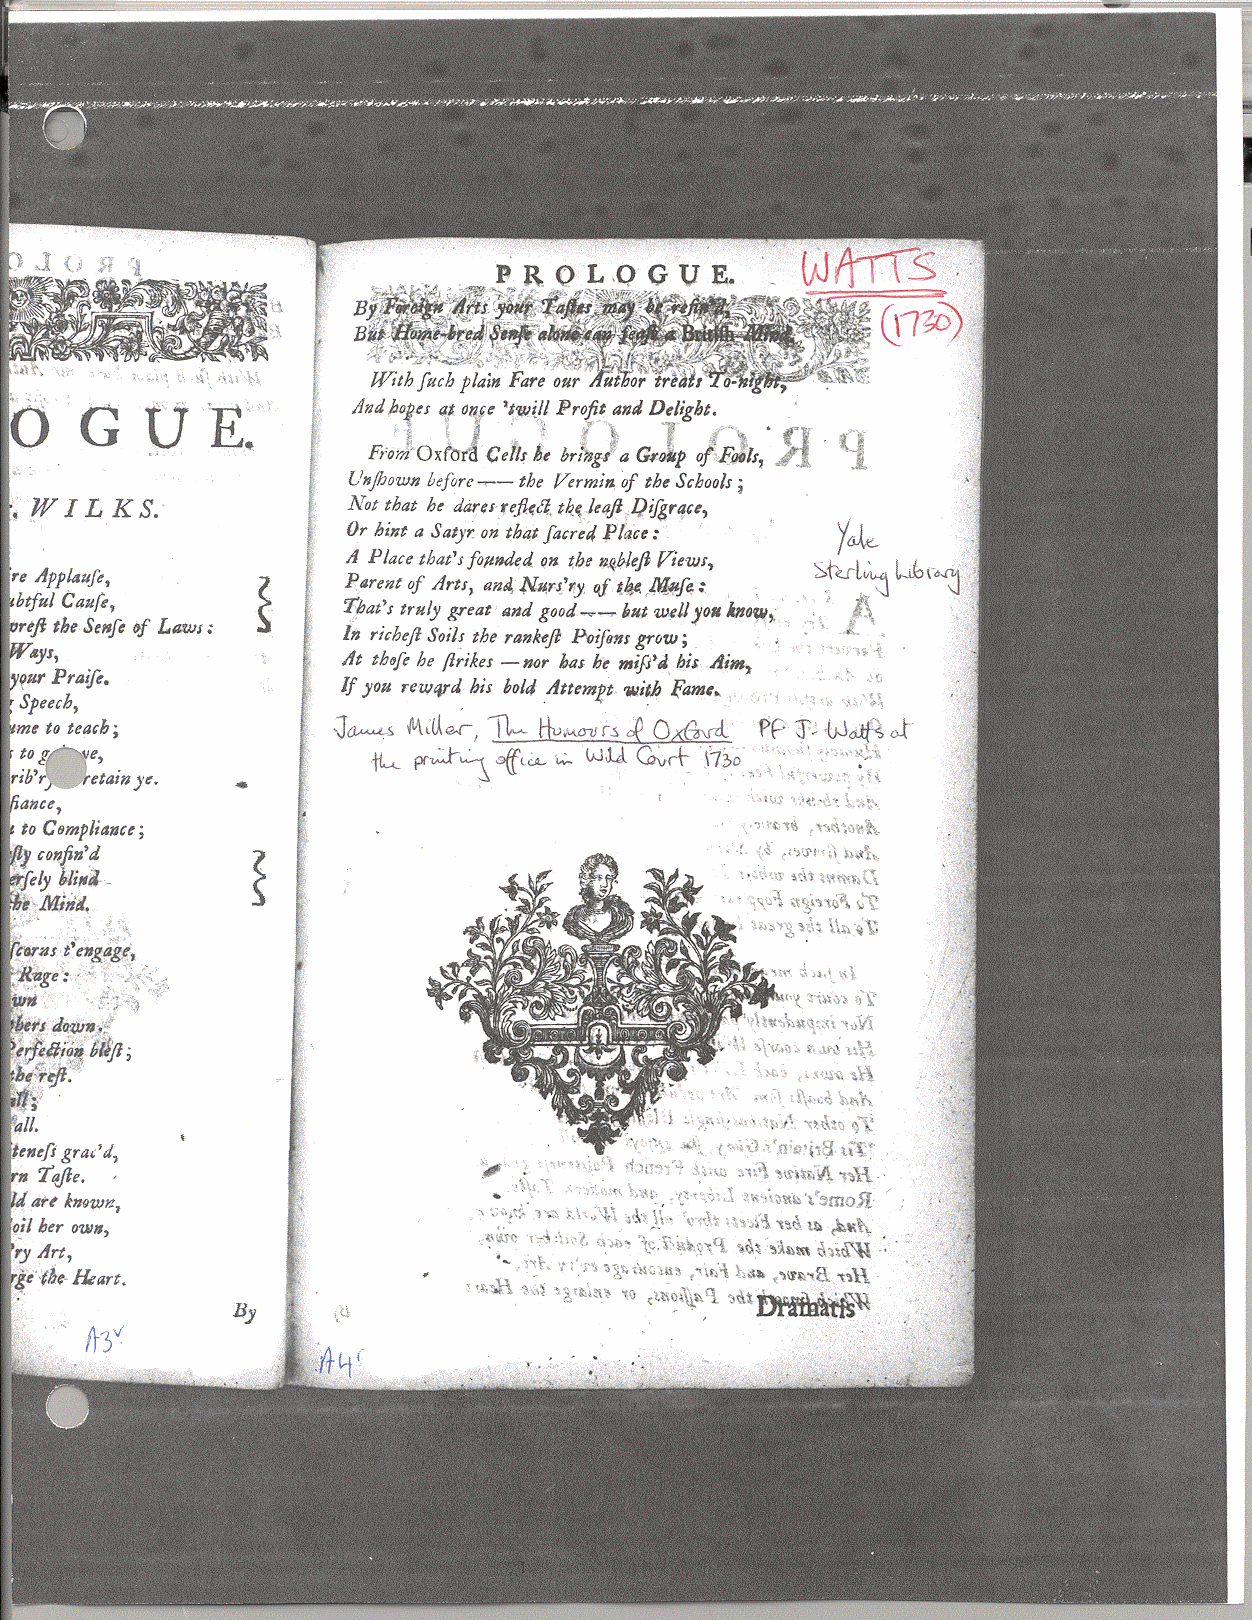 OGUE.
WILKS.
re Applauſe,
btful Cauſe,
preſt the Senſe of Laws:
Ways,
your Praiſe.
Speech,
me to teach;
to g ve,
rib'ry retain ye.
fiance,
to Compliance;
ſtly confin'd
erſely blind
he Mind.
ſcoras t'engage,
Rage:
wn
bers down.
Perfection bleſt;
the reſt.
all;
all.
teneſs grac'd,
rn Taſte.
ld are known,
oil her own,
'ry Art,
rge the Heart.
By
A3v
PROLOGUE.
WATTS
(1730)
By Foreign Arts your Taſtes may be refin'd,
But Home-bred Senſe alone can feaſt a Britiſh Mind.
With ſuch plain Fare our Author treats To-night,
And hopes at once 'twill Profit and Delight.
From Oxford Cells he brings a Group of Fools,
Unſhown before—— the Vermin of the Schools;
Not that he dares reflect the leaſt Diſgrace,
Or hint a Satyr on that ſacred Place:
A Place that's founded on the nobleſt Views,
Parent of Arts, and Nurs'ry of the Muſe:
That's truly great and good—— but well you know,
In richeſt Soils the rankeſt Poiſons grow;
At thoſe he ſtrikes —nor has he miſs'd his Aim,
If you reward his bold Attempt with Fame.
Yale
Sterling Library
James Miller, The Humours of Oxford PF J. Watts at
the printing office in Wild Court 1730
Dramatis
A4r